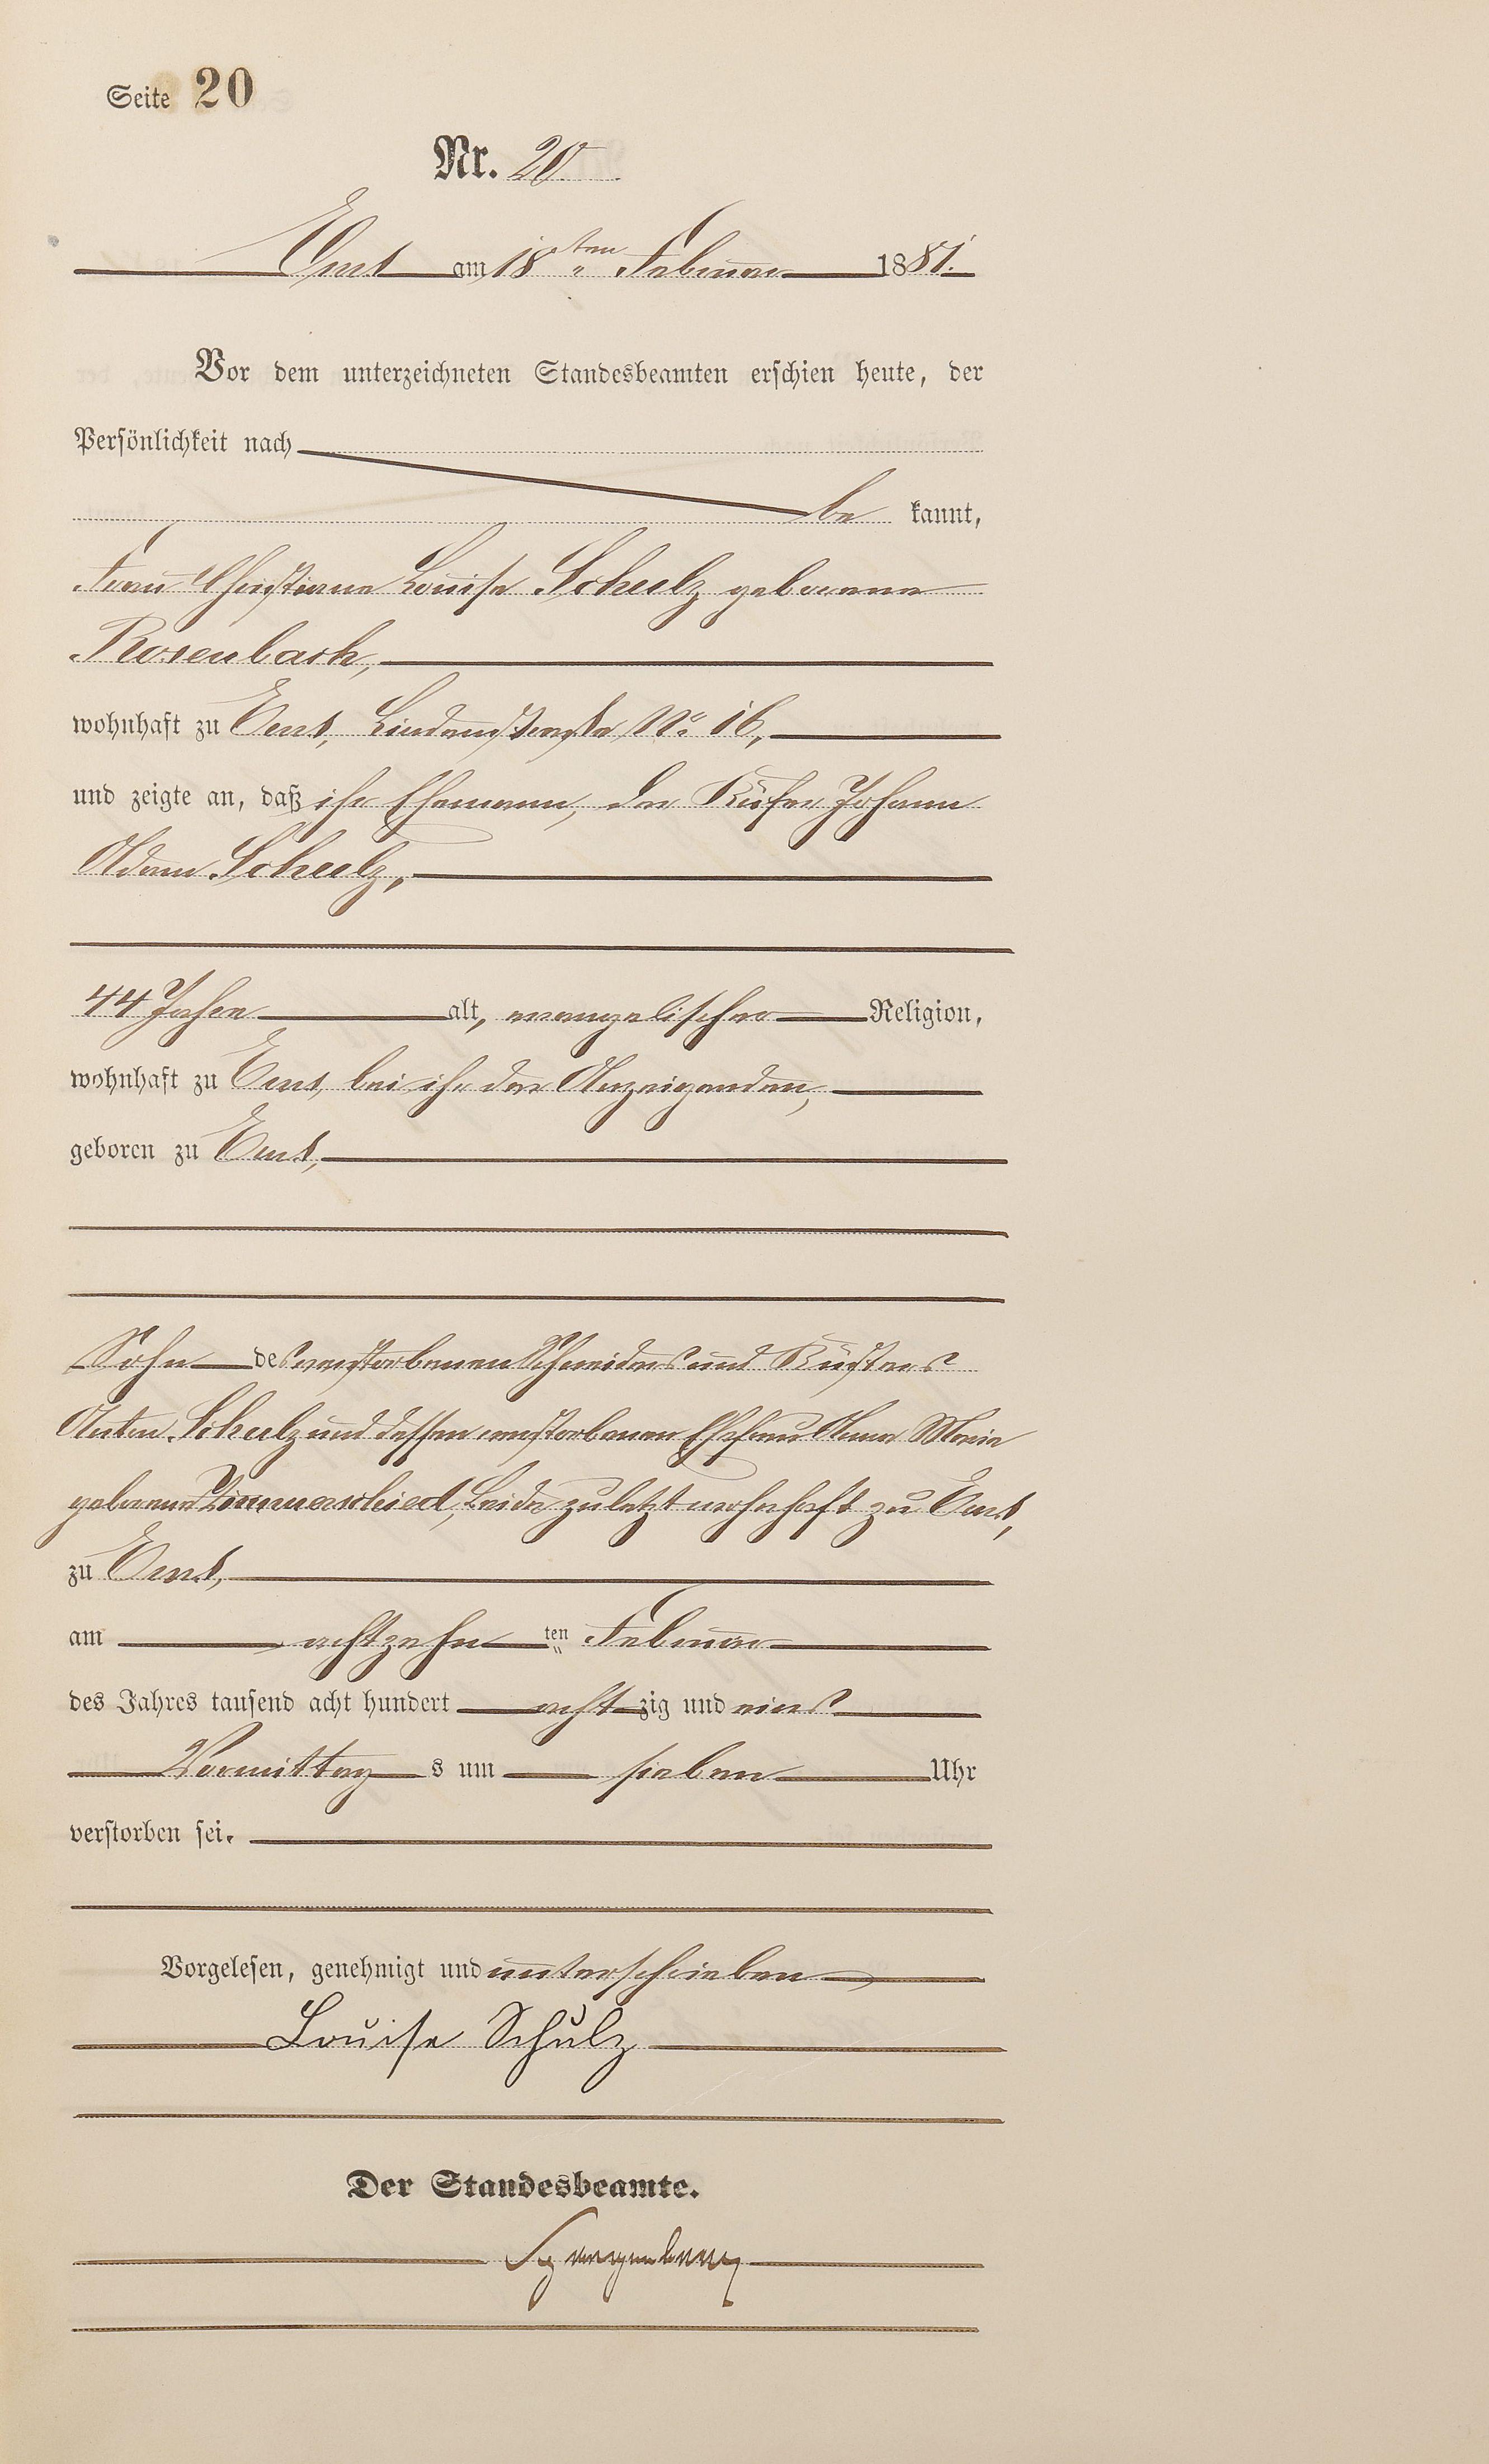 Seite 20
Nr. 20
Ems am 18ten Februar 1881.
Vor dem unterzeichneten Standesbeamten erschien heute, der
Persönlichkeit nach
be kannt,
Frau Christiane Louise Schulz geborene
Rosenbach,
wohnhaft zu Ems, Lindenstraße No 16,
und zeigte an, daß ihr Ehemann, der Küfer Johann
Adam Schulz,
44 Jahre alt, evangelischer Religion,
wohnhaft zu Ems, bei ihr der Anzeigenden,
geboren zu Ems,
Sohn des verstorbenen Schneiders und Küsters
Anton Schulz und dessen verstorbenen Ehefrau Anna Maria
geborene Zimmerschied, beide zuletzt wohnhaft zu Ems,
zu Ems,
am achtzehn ten Februar
des Jahres tausend acht hundert acht zig und eins
Vormittag s um sieben Uhr
verstorben sei.
Vorgelesen, genehmigt und unterschrieben
Louise Schulz
Der Standesbeamte.